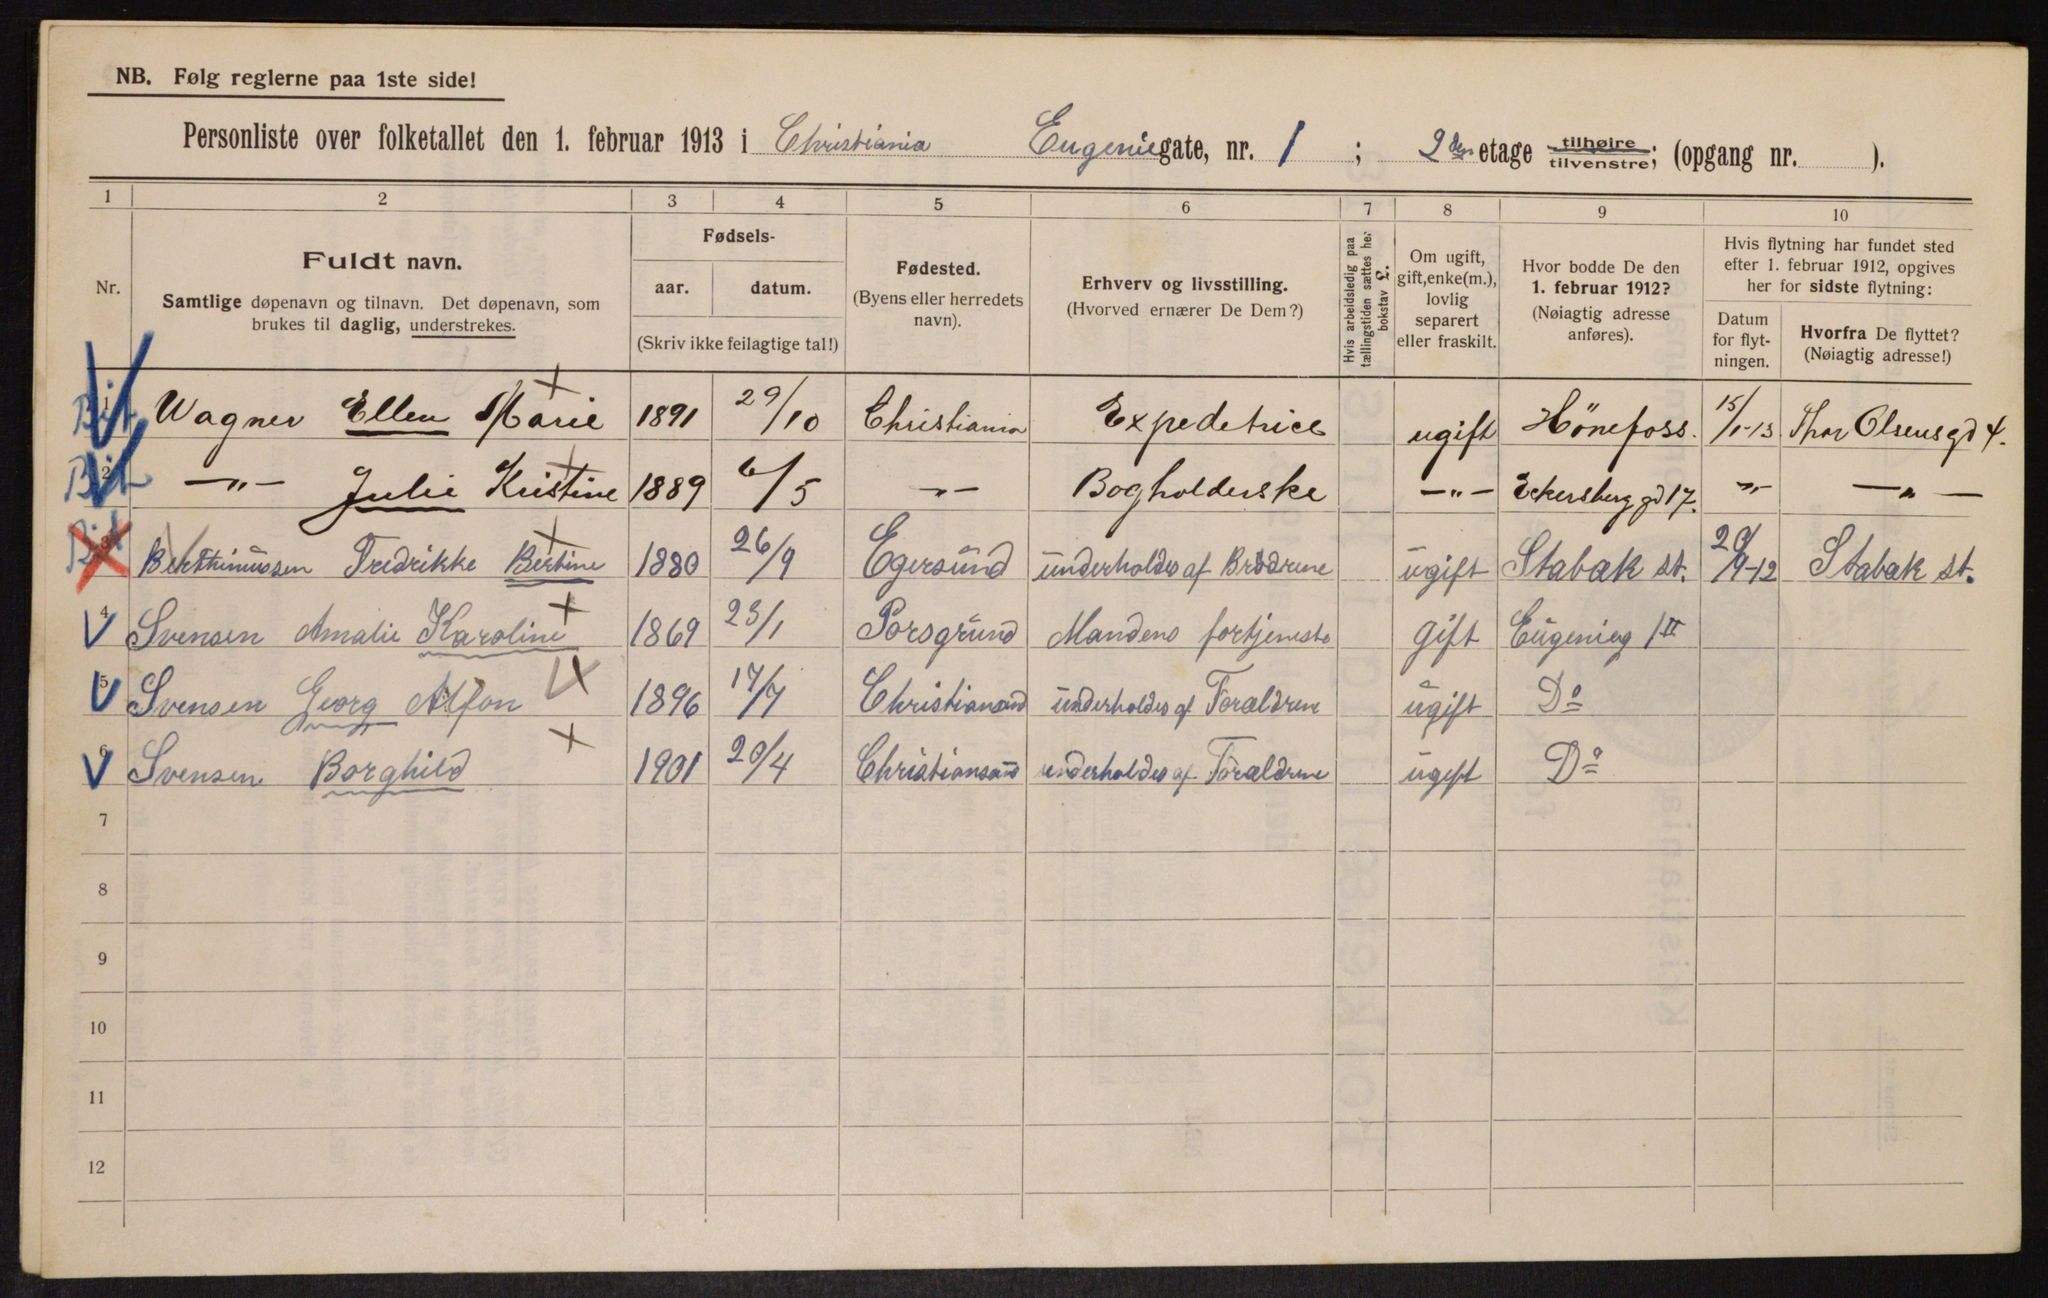 NB. Følg reglerne paa 1ste side!
Personliste over folketallet den 1. februar 1913 i Christiania Eugeniegate, nr. 1 ; 2den etage tilhøire/tilvenstre; (opgang nr. ).
1 2 3 4 5 6 7 8 9 10
Nr.
Fuldt navn.
Samtlige døpenavn og tilnavn. Det døpenavn, som
brukes til daglig, understrekes.
Fødsels-
aar. datum.
(Skriv ikke feilagtige tal!)
Fødested.
(Byens eller herredets
navn).
Erhverv og livsstilling.
(Hvorved ernærer De Dem?)
Hvis arbeidsledig paa
tællingstiden sættes her
bokstav L.
Om ugift,
gift, enke(m.),
lovlig
separert
eller fraskilt.
Hvor bodde De den
1. februar 1912?
(Nøiagtig adresse
anføres).
Hvis flytning har fundet sted
efter 1. februar 1912, opgives
her for sidste flytning:
Datum
for flyt-
ningen.
Hvorfra De flyttet?
(Nøiagtig adresse!)
1 Wagner Ellen Marie 1891 29/10 Christiania Expeditrice ugift Hönefoss. 15/1-13 Thor Olsens gd 4.
2 —"— Julie Kristine 1889 6/5 —"— Bogholderske —"— Eckersberg gd 17. —"— —"—
3 Berthinussen Fredrikke Bertine 1880 26/9 Egersund underholdes af Brödrene ugift Stabæk st. 20/9-12 Stabæk st.
4 Svensen Amalie Karoline 1869 23/1 Porsgrund Mandens fortjeneste gift Eugenieg 1 II
5 Svensen Georg Alfon 1896 17/7 Christiansand underholdes af Forældrene ugift Do
6 Svensen Borghild 1901 20/4 Christiansand underholdes af Forældrene ugift Do
7
8
9
10
11
12